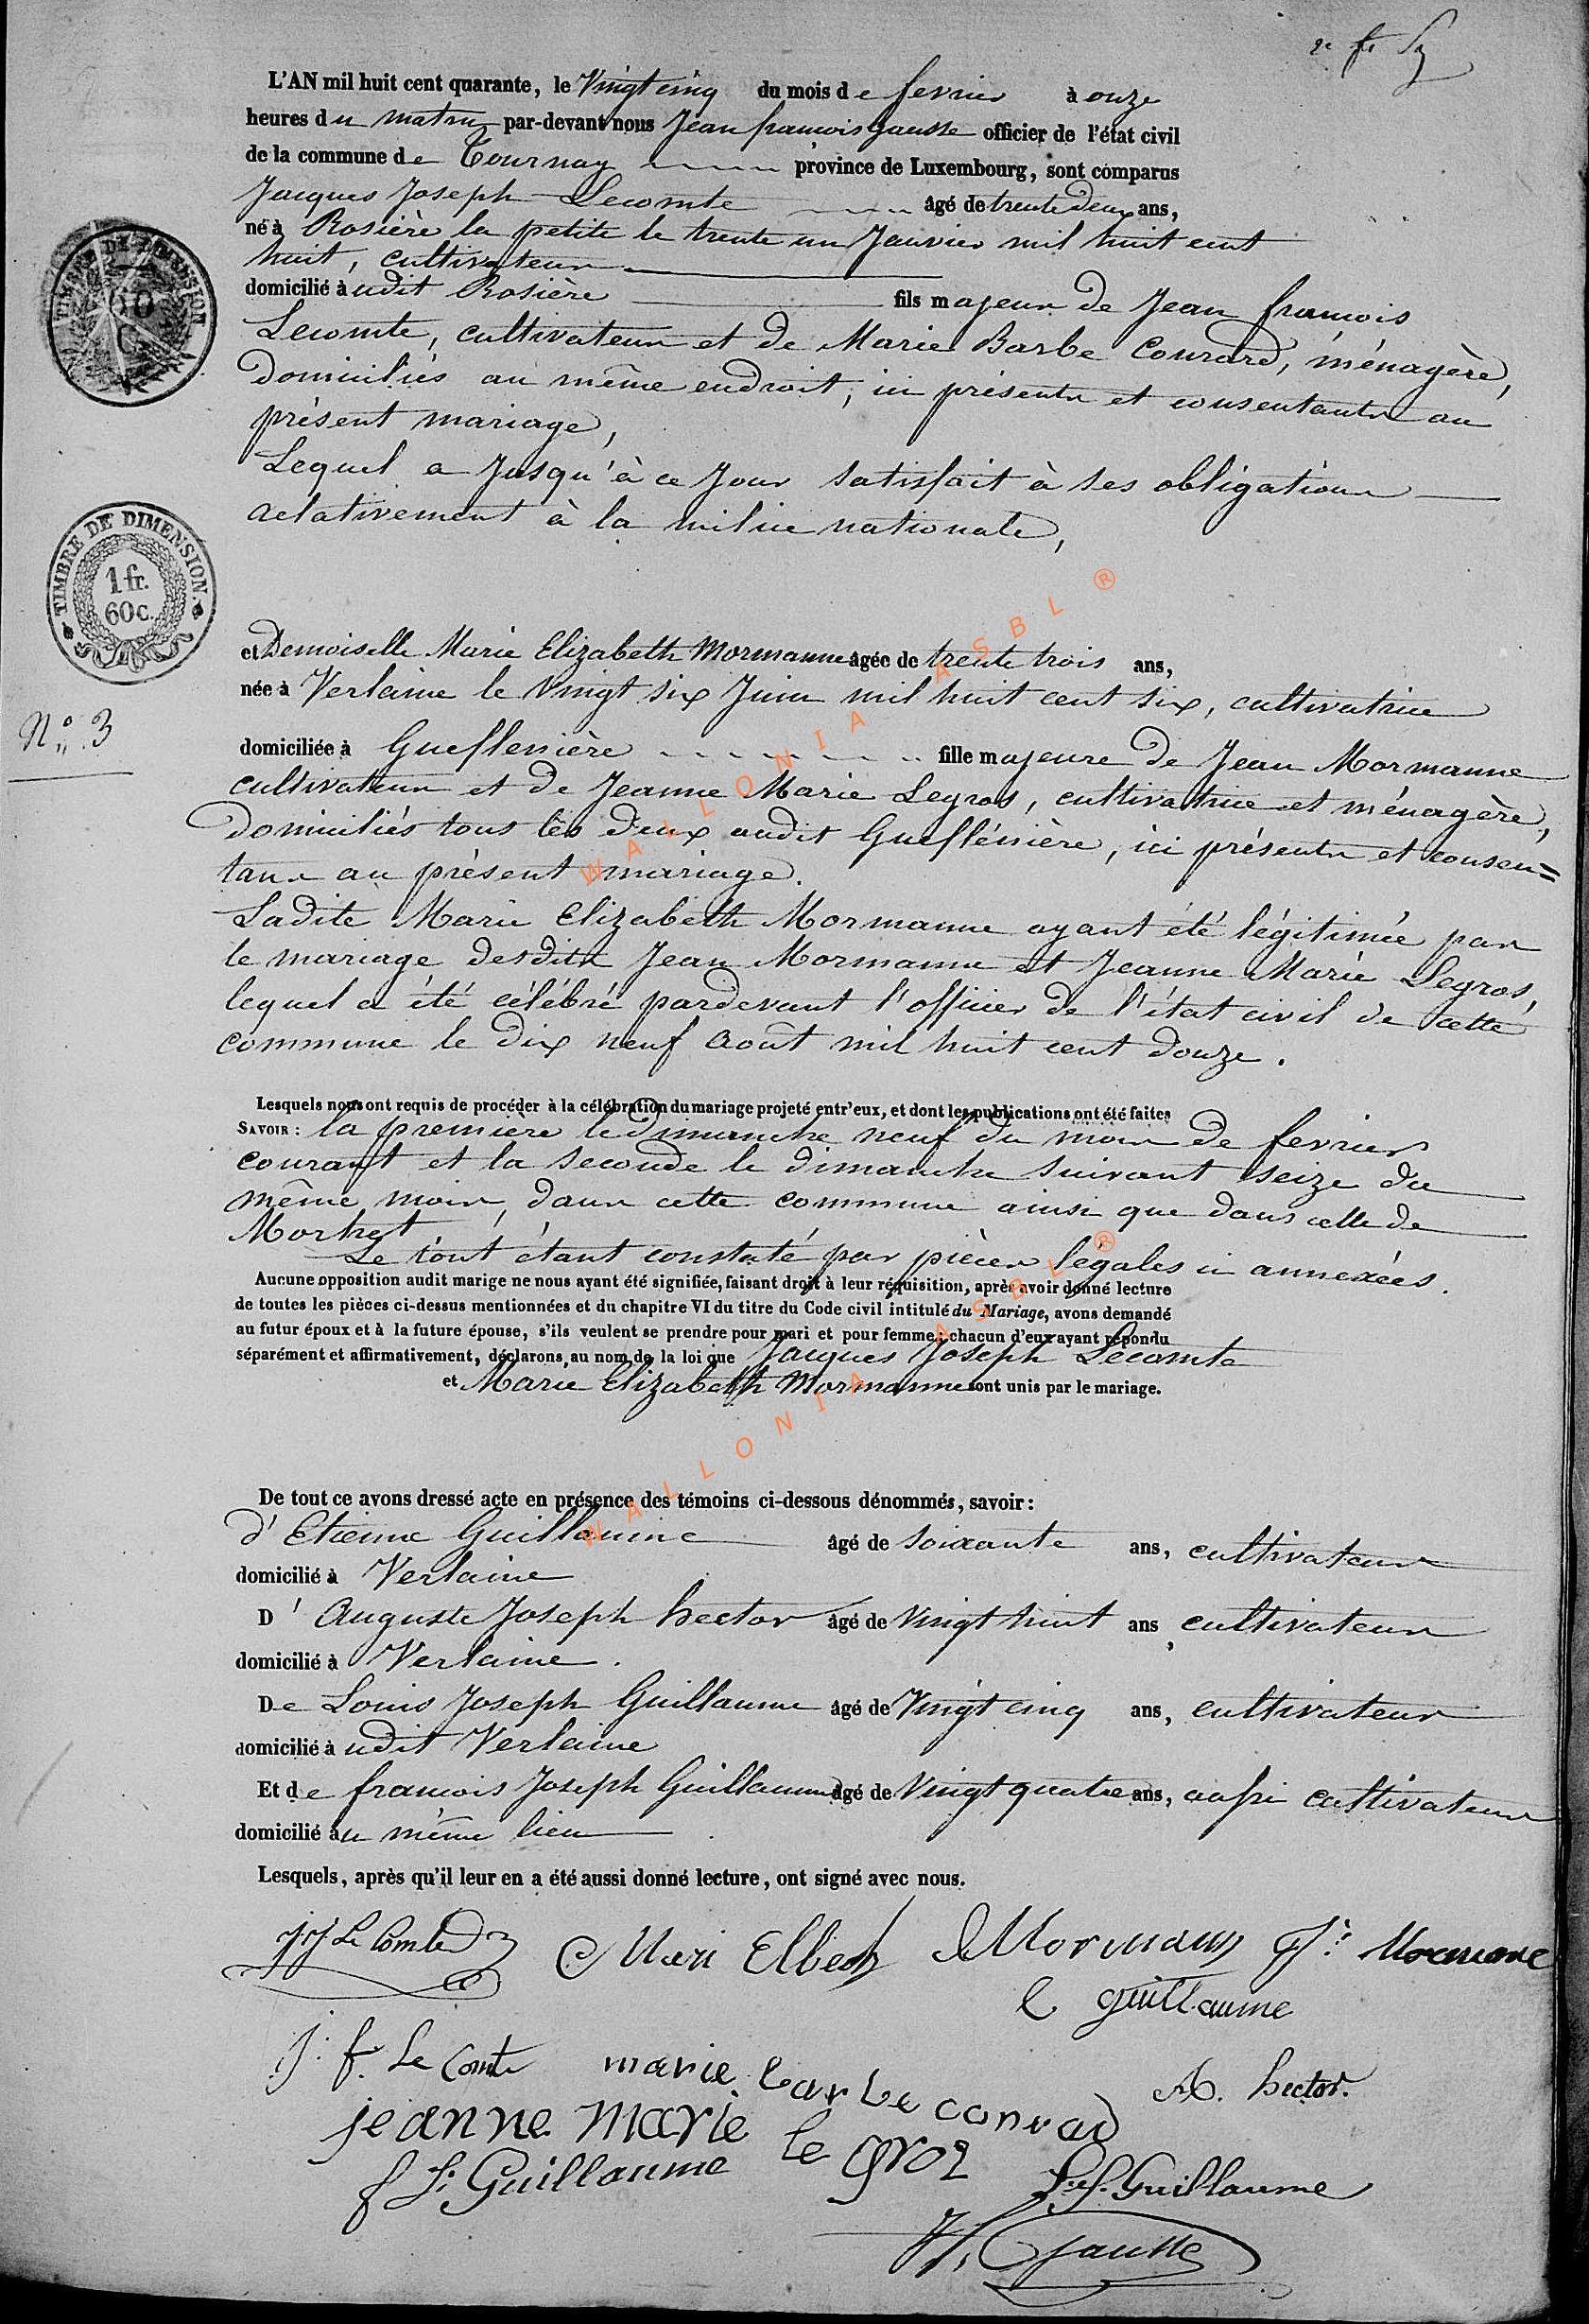 L'AN mil huit cent quarante, le Vingt cinq du mois de fevrier à onze
heures du matin par-devant nous Jean francois Gausse officier de l'état civil
de la commune de Tournay province de Luxembourg, sont comparus
Jacques Joseph Lecomte âgé de trente deux ans,
né à Rosière la petite le trente un Janvier mil huit cent
huit, cultivateur
domicilié audit Rosière fils majeur de Jean francois
Lecomte, cultivateur et de Marie Barbe Conrard, ménagère,
domiciliés au même endroit, ici présents et consentants au
présent mariage,
Lequel a Jusqu'à ce Jour satisfait à ses obligations
relativement à la milice nationale,
et Demoiselle Marie Elizabeth Mormanne âgée de trente trois ans,
née à Verlaine le Vingt six Juin mil huit cent six, cultivatrice
N° 3
domiciliée à Gueflenière fille majeure de Jean Mormanne
cultivateur et de Jeanne Marie Legros, cultivatrice et ménagère,
domiciliés tous les deux audit Gueflénière, ici présents et consen=
tans au présent mariage.
Ladite Marie Elizabeth Mormanne ayant été légitimée par
le mariage desdits Jean Mormanne et Jeanne Marie Legros,
lequel a été célébré pardevant l'officier de l'état civil de cette
commune le dix neuf Août mil huit cent douze.
Lesquels nous ont requis de procéder à la célébration du mariage projeté entr'eux, et dont les publications ont été faites
SAVOIR : la première le dimanche neuf du mois de fevrier
courant et la seconde le dimanche suivant seize du
même mois, dans cette commune ainsi que dans celle de
Morhet
Le tout étant constaté par pièces légales ci annexées.
Aucune opposition audit marige ne nous ayant été signifiée, faisant droit à leur réquisition, après avoir donné lecture
de toutes les pièces ci-dessus mentionnées et du chapitre VI du titre du Code civil intitulé du Mariage, avons demandé
au futur époux et à la future épouse, s'ils veulent se prendre pour mari et pour femme; chacun d'eux ayant répondu
séparément et affirmativement, déclarons, au nom de la loi que Jacques Joseph Lecomte
et Marie Elizabeth Mormanne sont unis par le mariage.
De tout ce avons dressé acte en présence des témoins ci-dessous dénommés, savoir :
d'Etienne Guillaume âgé de soixante ans, cultivateur
domicilié à Verlaine
D'Auguste Joseph hector âgé de Vingt huit ans, cultivateur
domicilié à Verlaine.
De Louis Joseph Guillaume âgé de Vingt cinq ans, cultivateur
domicilié audit Verlaine
Et de francois Joseph Guillaume âgé de Vingt quatre ans, aussi cultivateur
domicilié au même lieu
Lesquels, après qu'il leur en a été aussi donné lecture, ont signé avec nous.
J J Le Comte Mari Elbeth Mormann J: Mormane
e guillaume
J: f. Le Comte marie barbe conrad A. hector.
jeanne marie le groz
f J: Guillaume L: J. Guillaume
J f. Gausse
TIMBRE DE DIMENSION
60
C
TIMBRE DE DIMENSION.
1 fr.
60 c.
WALLONIA ASBL ®
WALLONIA ASBL ®